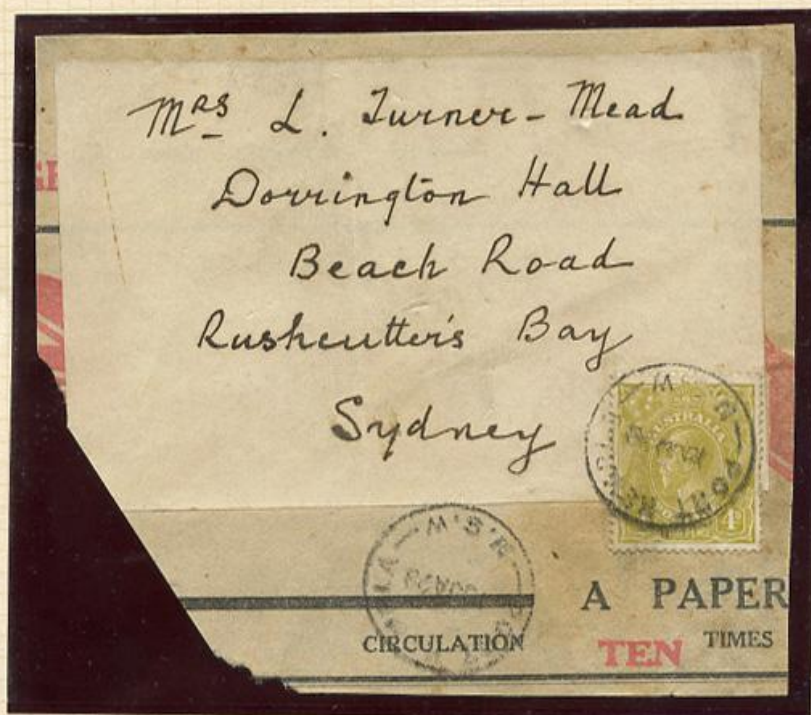 Mrs L. Turner-Mead
Dorrington Hall
Beach Road
Rushcutter's Bay
Sydney
AUSTRALIA
4D
N.S.W
N.S.W
A PAPER
CIRCULATION TEN TIMES